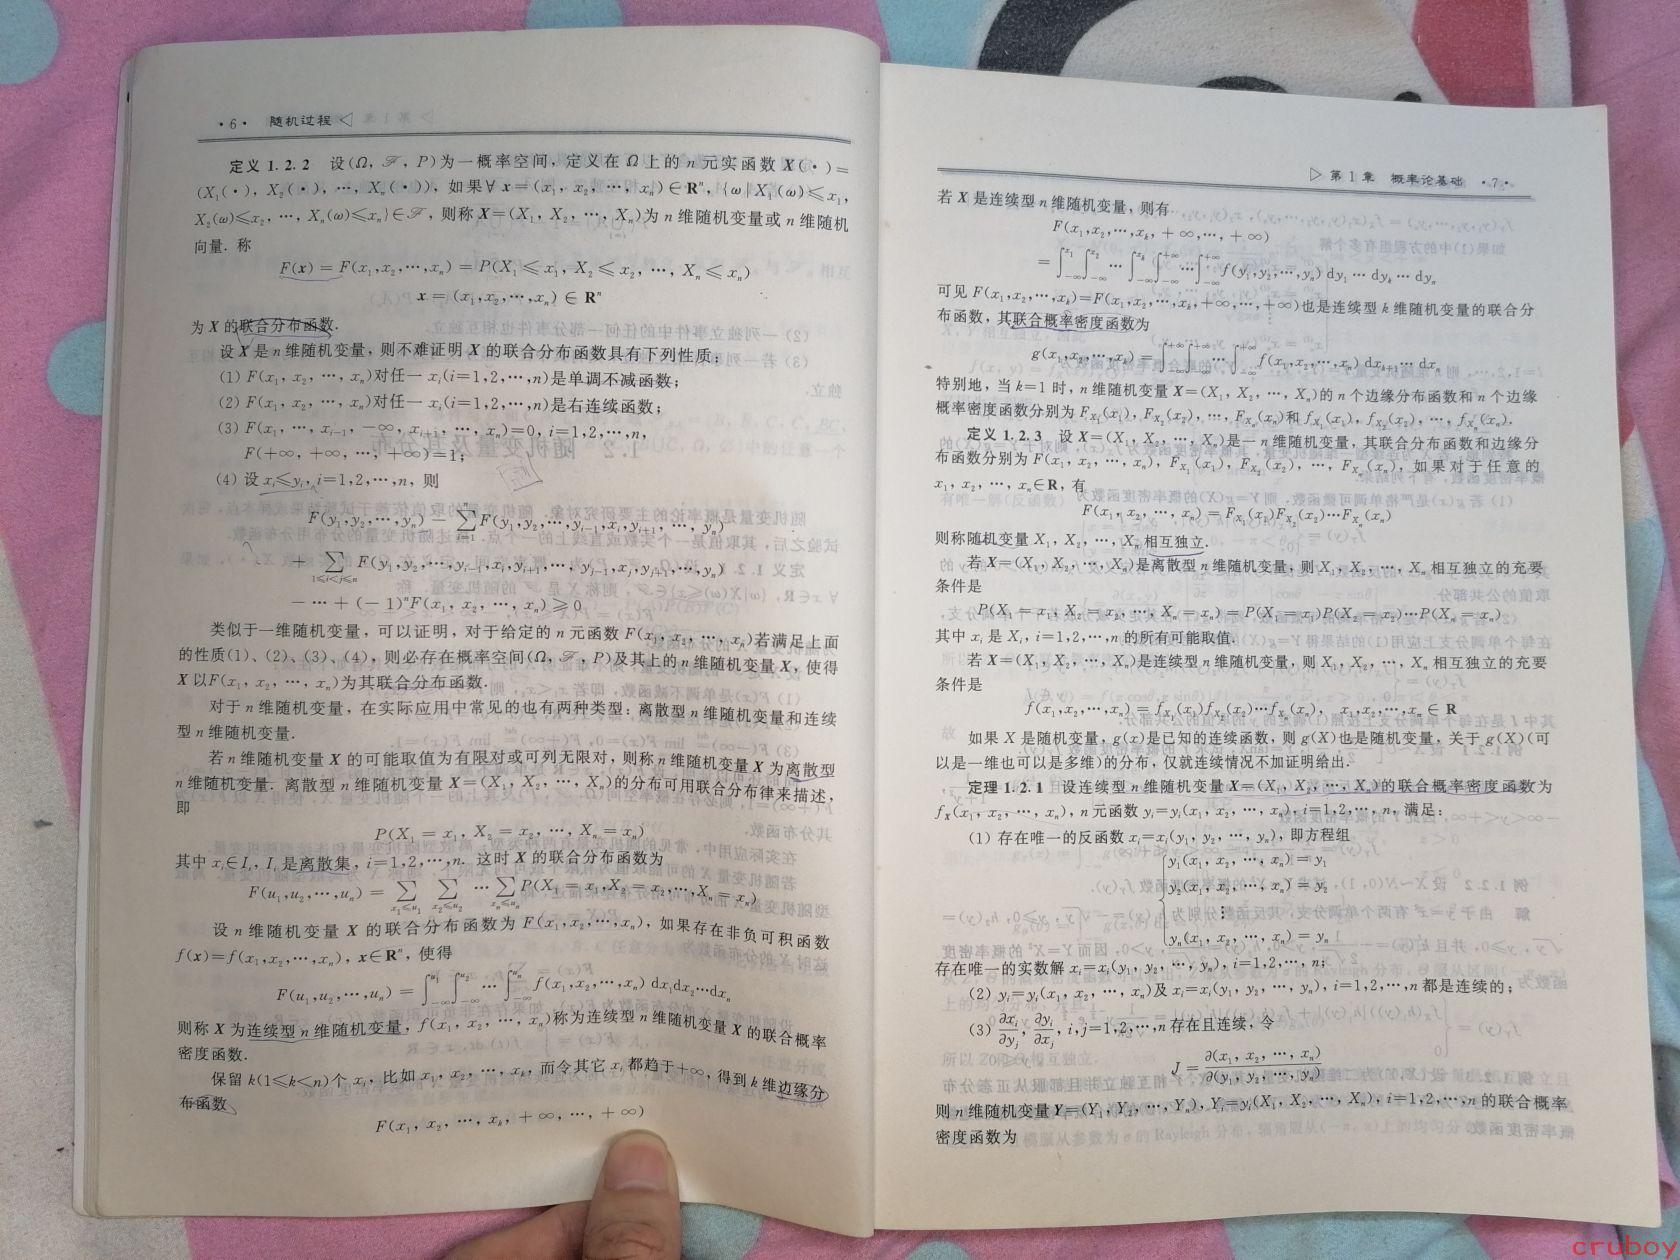 ·6· 随机过程 ◁
定义 1.2.2 设(Ω, ℱ, P)为一概率空间,定义在 Ω 上的 n 元实函数 X(·)=
(X₁(·), X₂(·), …, Xₙ(·)), 如果∀ x=(x₁, x₂, …, xₙ)∈Rⁿ, {ω|X₁(ω)≤x₁,
X₂(ω)≤x₂, …, Xₙ(ω)≤xₙ}∈ℱ, 则称 X=(X₁, X₂, …, Xₙ)为 n 维随机变量或 n 维随机
向量. 称
F(x)=F(x₁,x₂,…,xₙ)=P(X₁≤x₁, X₂≤x₂, …, Xₙ≤xₙ)
x=(x₁,x₂,…,xₙ)∈Rⁿ
为 X 的联合分布函数.
设 X 是 n 维随机变量, 则不难证明 X 的联合分布函数具有下列性质:
(1) F(x₁, x₂, …, xₙ)对任一 xᵢ(i=1,2,…,n)是单调不减函数;
(2) F(x₁, x₂, …, xₙ)对任一 xᵢ(i=1,2,…,n)是右连续函数;
(3) F(x₁, …, xᵢ₋₁, −∞, xᵢ₊₁, …, xₙ)=0, i=1,2,…,n,
F(+∞, +∞, …, +∞)=1;
(4) 设 xᵢ≤yᵢ, i=1,2,…,n, 则
F(y₁,y₂,…,yₙ) − ∑ᵢ₌₁ⁿ F(y₁,y₂,…,yᵢ₋₁,xᵢ,yᵢ₊₁,…,yₙ)
+ ∑_{1≤i<j≤n} F(y₁,y₂,…,yᵢ₋₁,xᵢ,yᵢ₊₁,…,yⱼ₋₁,xⱼ,yⱼ₊₁,…,yₙ)
−…+(−1)ⁿF(x₁, x₂, …, xₙ)≥0
类似于一维随机变量, 可以证明, 对于给定的 n 元函数 F(x₁, x₁, …, xₙ)若满足上面
的性质(1)、(2)、(3)、(4), 则必存在概率空间(Ω, ℱ, P)及其上的 n 维随机变量 X, 使得
X 以F(x₁, x₂, …, xₙ)为其联合分布函数.
对于 n 维随机变量, 在实际应用中常见的也有两种类型: 离散型 n 维随机变量和连续
型 n 维随机变量.
若 n 维随机变量 X 的可能取值为有限对或可列无限对, 则称 n 维随机变量 X 为离散型
n 维随机变量. 离散型 n 维随机变量 X=(X₁, X₂, …, Xₙ)的分布可用联合分布律来描述,
即
P(X₁=x₁, X₂=x₂, …, Xₙ=xₙ)
其中 xᵢ∈Iᵢ, Iᵢ 是离散集, i=1,2,…,n. 这时 X 的联合分布函数为
F(u₁,u₂,…,uₙ) = ∑_{x₁≤u₁} ∑_{x₂≤u₂} … ∑_{xₙ≤uₙ} P(X₁=x₁,X₂=x₂,…,Xₙ=xₙ)
设 n 维随机变量 X 的联合分布函数为 F(x₁,x₂,…,xₙ), 如果存在非负可积函数
f(x)=f(x₁,x₂,…,xₙ), x∈Rⁿ, 使得
F(u₁,u₂,…,uₙ) = ∫_{−∞}^{u₁} ∫_{−∞}^{u₂} … ∫_{−∞}^{uₙ} f(x₁,x₂,…,xₙ) dx₁dx₂…dxₙ
则称 X 为连续型 n 维随机变量, f(x₁, x₂, …, xₙ)称为连续型 n 维随机变量 X 的联合概率
密度函数.
保留 k(1≤k<n)个 xᵢ, 比如 x₁, x₂, …, xₖ, 而令其它 xᵢ 都趋于+∞, 得到 k 维边缘分
布函数
F(x₁, x₂, …, xₖ, +∞, …, +∞)
▷ 第 1 章 概率论基础 ·7·
若 X 是连续型 n 维随机变量, 则有
F(x₁,x₂,…,xₖ,+∞,…,+∞)
= ∫_{−∞}^{x₁} ∫_{−∞}^{x₂} … ∫_{−∞}^{xₖ} ∫_{−∞}^{+∞} … ∫_{−∞}^{+∞} f(y₁,y₂,…,yₙ) dy₁…dyₖ…dyₙ
可见 F(x₁,x₂,…,xₖ)=F(x₁,x₂,…,xₖ,+∞,…,+∞)也是连续型 k 维随机变量的联合分
布函数, 其联合概率密度函数为
g(x₁,x₂,…,xₖ) = ∫_{−∞}^{+∞} ∫_{−∞}^{+∞} … ∫_{−∞}^{+∞} f(x₁,x₂,…,xₙ) dxₖ₊₁…dxₙ
特别地, 当 k=1 时, n 维随机变量 X=(X₁, X₂, …, Xₙ)的 n 个边缘分布函数和 n 个边缘
概率密度函数分别为 F_{X₁}(x₁), F_{X₂}(x₂), …, F_{Xₙ}(xₙ)和 f_{X₁}(x₁), f_{X₂}(x₂), …, f_{Xₙ}(xₙ).
定义 1.2.3 设 X=(X₁, X₂, …, Xₙ)是一 n 维随机变量, 其联合分布函数和边缘分
布函数分别为 F(x₁, x₂, …, xₙ), F_{X₁}(x₁), F_{X₂}(x₂), …, F_{Xₙ}(xₙ), 如果对于任意的
x₁, x₂, …, xₙ∈R, 有
F(x₁, x₂, …, xₙ)=F_{X₁}(x₁)F_{X₂}(x₂)…F_{Xₙ}(xₙ)
则称随机变量 X₁, X₂, …, Xₙ 相互独立.
若 X=(X₁, X₂, …, Xₙ)是离散型 n 维随机变量, 则 X₁, X₂, …, Xₙ 相互独立的充要
条件是
P(X₁=x₁, X₂=x₂, …, Xₙ=xₙ)=P(X₁=x₁)P(X₂=x₂)…P(Xₙ=xₙ)
其中 xᵢ 是 Xᵢ, i=1,2,…,n 的所有可能取值.
若 X=(X₁, X₂, …, Xₙ)是连续型 n 维随机变量, 则 X₁, X₂, …, Xₙ 相互独立的充要
条件是
f(x₁,x₂,…,xₙ)=f_{X₁}(x₁)f_{X₂}(x₂)…f_{Xₙ}(xₙ), x₁,x₂,…,xₙ∈R
如果 X 是随机变量, g(x)是已知的连续函数, 则 g(X)也是随机变量, 关于 g(X)(可
以是一维也可以是多维)的分布, 仅就连续情况不加证明给出.
定理 1.2.1 设连续型 n 维随机变量 X=(X₁, X₂, …, Xₙ)的联合概率密度函数为
f_X(x₁, x₂, …, xₙ), n 元函数 yᵢ=yᵢ(x₁, x₂, …, xₙ), i=1,2,…, n, 满足:
(1) 存在唯一的反函数 xᵢ=xᵢ(y₁, y₂, …, yₙ), 即方程组
y₁(x₁, x₂, …, xₙ)=y₁
y₂(x₁, x₂, …, xₙ)=y₂
⋮
yₙ(x₁, x₂, …, xₙ)=yₙ
存在唯一的实数解 xᵢ=xᵢ(y₁, y₂, …, yₙ), i=1,2,…, n;
(2) yᵢ=yᵢ(x₁, x₂, …, xₙ)及 xᵢ=xᵢ(y₁, y₂, …, yₙ), i=1,2,…,n 都是连续的;
(3) ∂xᵢ/∂yⱼ, ∂yᵢ/∂xⱼ, i,j=1,2,…,n 存在且连续, 令
J = ∂(x₁, x₂, …, xₙ)/∂(y₁, y₂, …, yₙ)
则 n 维随机变量 Y=(Y₁, Y₂, …, Yₙ), Yᵢ=yᵢ(X₁, X₂, …, Xₙ), i=1,2,…,n 的联合概率
密度函数为
cruboy